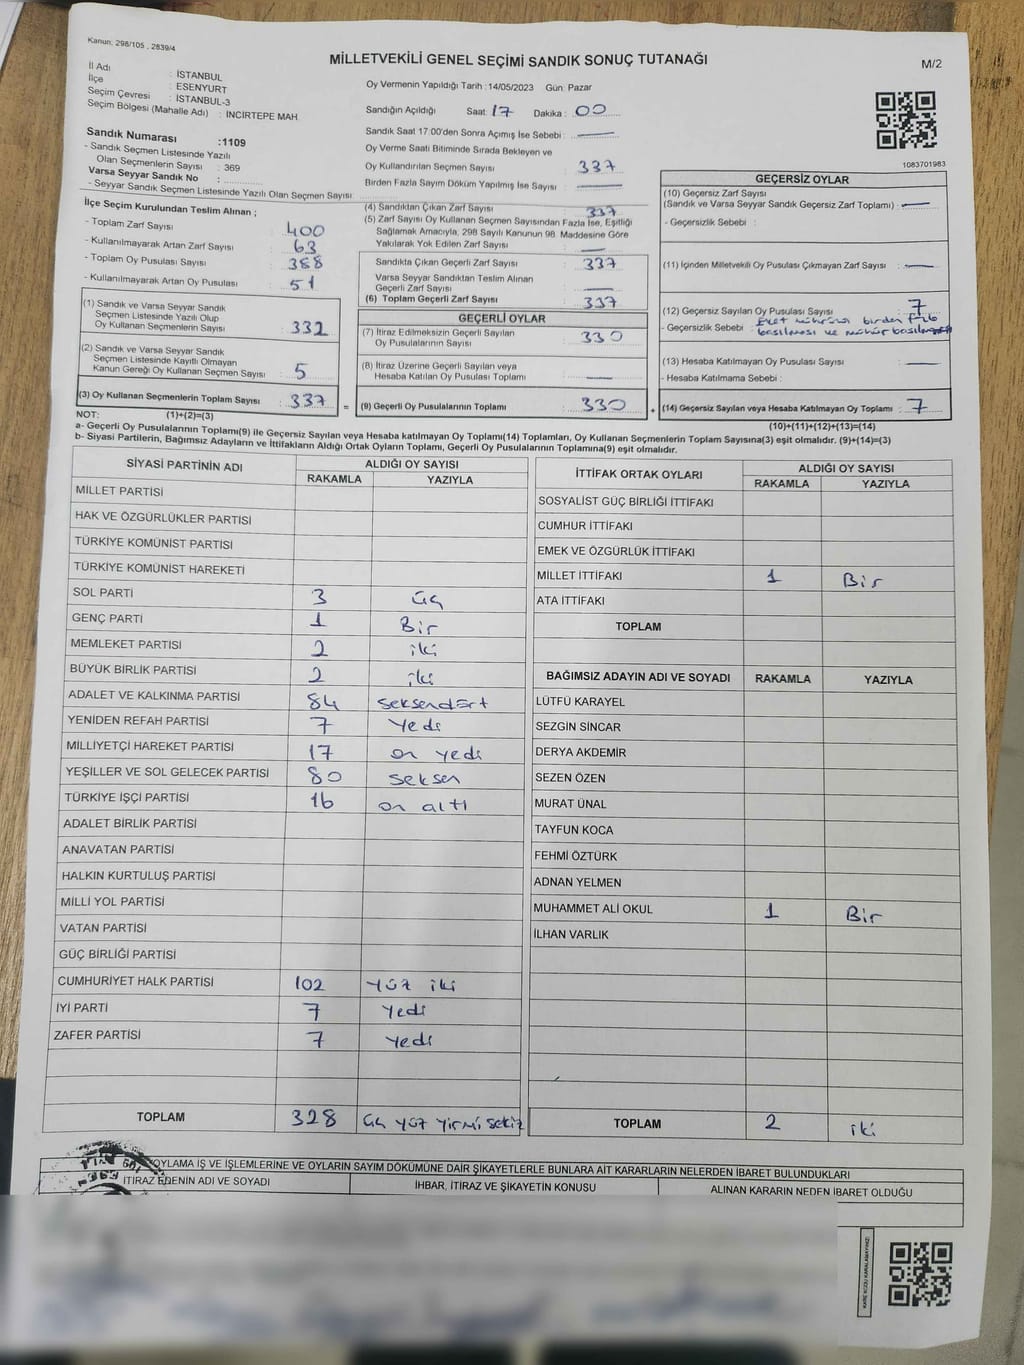 Kanun: 298/105 , 2839/4
MİLLETVEKİLİ GENEL SEÇİMİ SANDIK SONUÇ TUTANAĞI
M/2
İl Adı : İSTANBUL
İlçe : ESENYURT
Seçim Çevresi : İSTANBUL-3
Seçim Bölgesi (Mahalle Adı) : İNCİRTEPE MAH.
Sandık Numarası :1109
- Sandık Seçmen Listesinde Yazılı
Olan Seçmenlerin Sayısı : 369
Varsa Seyyar Sandık No :
- Seyyar Sandık Seçmen Listesinde Yazılı Olan Seçmen Sayısı
İlçe Seçim Kurulundan Teslim Alınan ;
- Toplam Zarf Sayısı 400
- Kullanılmayarak Artan Zarf Sayısı 63
- Toplam Oy Pusulası Sayısı 388
- Kullanılmayarak Artan Oy Pusulası 51
(1) Sandık ve Varsa Seyyar Sandık
Seçmen Listesinde Yazılı Olup
Oy Kullanan Seçmenlerin Sayısı 332
(2) Sandık ve Varsa Seyyar Sandık
Seçmen Listesinde Kayıtlı Olmayan
Kanun Gereği Oy Kullanan Seçmen Sayısı 5
(3) Oy Kullanan Seçmenlerin Toplam Sayısı 337 =
Oy Vermenin Yapıldığı Tarih : 14/05/2023 Gün: Pazar
Sandığın Açıldığı Saat: 17 Dakika: 00
Sandık Saat 17.00'den Sonra Açılmış İse Sebebi :
Oy Verme Saati Bitiminde Sırada Bekleyen ve
Oy Kullandırılan Seçmen Sayısı 337
Birden Fazla Sayım Döküm Yapılmış İse Sayısı
(4) Sandıktan Çıkan Zarf Sayısı 337
(5) Zarf Sayısı Oy Kullanan Seçmen Sayısından Fazla İse, Eşitliği
Sağlamak Amacıyla, 298 Sayılı Kanunun 98. Maddesine Göre
Yakılarak Yok Edilen Zarf Sayısı
Sandıkta Çıkan Geçerli Zarf Sayısı 337
Varsa Seyyar Sandıktan Teslim Alınan
Geçerli Zarf Sayısı
(6) Toplam Geçerli Zarf Sayısı 337
GEÇERLİ OYLAR
(7) İtiraz Edilmeksizin Geçerli Sayılan
Oy Pusulalarının Sayısı 330
(8) İtiraz Üzerine Geçerli Sayılan veya
Hesaba Katılan Oy Pusulası Toplamı
(9) Geçerli Oy Pusulalarının Toplamı 330 +
1083701983
GEÇERSİZ OYLAR
(10) Geçersiz Zarf Sayısı
(Sandık ve Varsa Seyyar Sandık Geçersiz Zarf Toplamı) :
- Geçersizlik Sebebi :
(11) İçinden Milletvekili Oy Pusulası Çıkmayan Zarf Sayısı :
(12) Geçersiz Sayılan Oy Pusulası Sayısı : 7
- Geçersizlik Sebebi : Evet mührünü birden fazla
basılması ve mühür
(13) Hesaba Katılmayan Oy Pusulası Sayısı :
- Hesaba Katılmama Sebebi :
(14) Geçersiz Sayılan veya Hesaba Katılmayan Oy Toplamı : 7
NOT: (1)+(2)=(3)
(10)+(11)+(12)+(13)=(14)
a- Geçerli Oy Pusulaların Toplamı(9) ile Geçersiz Sayılan veya Hesaba katılmayan Oy Toplamı(14) Toplamları, Oy Kullanan Seçmenlerin Toplam Sayısına(3) eşit olmalıdır. (9)+(14)=(3)
b- Siyasi Partilerin, Bağımsız Adayların ve İttifakların Aldığı Ortak Oyların Toplamı, Geçerli Oy Pusulalarının Toplamına(9) eşit olmalıdır.
SİYASİ PARTİNİN ADI ALDIĞI OY SAYISI
RAKAMLA YAZIYLA
MİLLET PARTİSİ
HAK VE ÖZGÜRLÜKLER PARTİSİ
TÜRKİYE KOMÜNİST PARTİSİ
TÜRKİYE KOMÜNİST HAREKETİ
SOL PARTİ 3 üç
GENÇ PARTİ 1 Bir
MEMLEKET PARTİSİ 2 iki
BÜYÜK BİRLİK PARTİSİ 2 iki
ADALET VE KALKINMA PARTİSİ 84 seksendört
YENİDEN REFAH PARTİSİ 7 Yedi
MİLLİYETÇİ HAREKET PARTİSİ 17 on yedi
YEŞİLLER VE SOL GELECEK PARTİSİ 80 seksen
TÜRKİYE İŞÇİ PARTİSİ 16 on altı
ADALET BİRLİK PARTİSİ
ANAVATAN PARTİSİ
HALKIN KURTULUŞ PARTİSİ
MİLLİ YOL PARTİSİ
VATAN PARTİSİ
GÜÇ BİRLİĞİ PARTİSİ
CUMHURİYET HALK PARTİSİ 102 yüz iki
İYİ PARTİ 7 Yedi
ZAFER PARTİSİ 7 Yedi
TOPLAM 328 üç yüz yirmi sekiz
İTTİFAK ORTAK OYLARI ALDIĞI OY SAYISI
RAKAMLA YAZIYLA
SOSYALİST GÜÇ BİRLİĞİ İTTİFAKI
CUMHUR İTTİFAKI
EMEK VE ÖZGÜRLÜK İTTİFAKI
MİLLET İTTİFAKI 1 Bir
ATA İTTİFAKI
TOPLAM
BAĞIMSIZ ADAYIN ADI VE SOYADI RAKAMLA YAZIYLA
LÜTFÜ KARAYEL
SEZGİN SİNCAR
DERYA AKDEMİR
SEZEN ÖZEN
MURAT ÜNAL
TAYFUN KOCA
FEHMİ ÖZTÜRK
ADNAN YELMEN
MUHAMMET ALİ OKUL 1 Bir
İLHAN VARLIK
TOPLAM 2 iki
OYLAMA İŞ VE İŞLEMLERİNE VE OYLARIN SAYIM DÖKÜMÜNE DAİR ŞİKAYETLERLE BUNLARA AİT KARARLARIN NELERDEN İBARET BULUNDUKLARI
İTİRAZ EDENİN ADI VE SOYADI
İHBAR, İTİRAZ VE ŞİKAYETİN KONUSU
ALINAN KARARIN NEDEN İBARET OLDUĞU
KAREKODU KARALAMAYINIZ!